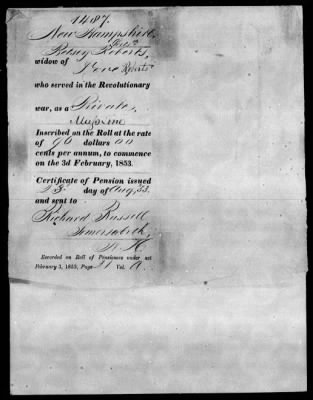 1487.
New Hampshire,
Betsey Roberts,
widow of Love Roberts
who served in the Revolutionary
war, as a Private,
Inscribed on the Roll at the rate
of 96 dollars 00
cents per annum, to commence
on the 3d February, 1853.
Certificate of Pension issued
day of Aug. 53.
and sent to
Richard Russell
Somersworth,
N. H.
Recorded on Roll of Pensioners under act
February 3, 1853, Page 31 Vol. A.